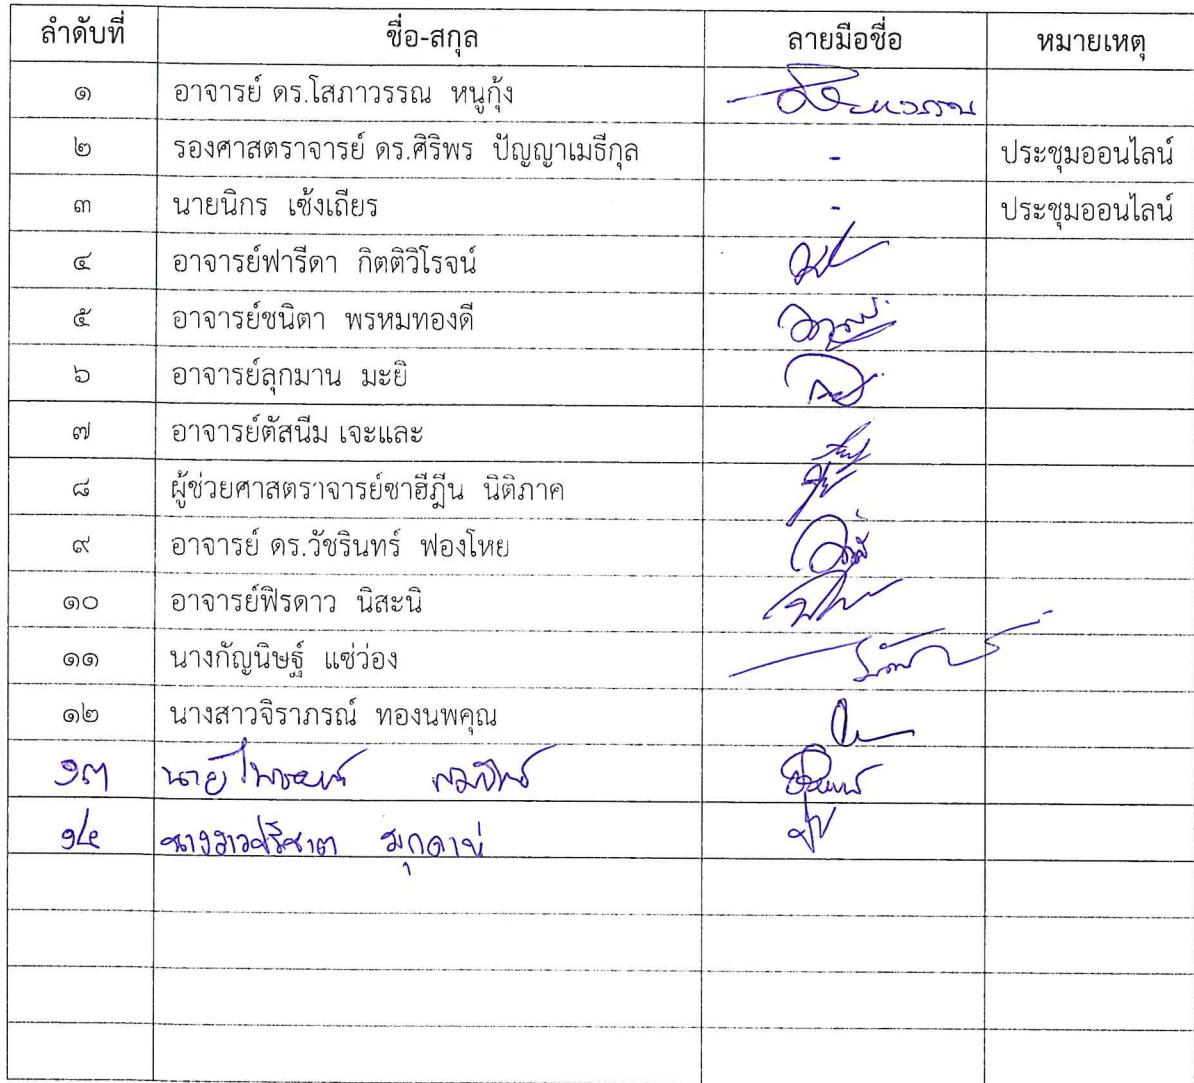 ลำดับที่ ชื่อ-สกุล ลายมือชื่อ หมายเหตุ
๑ อาจารย์ ดร.โสภาวรรณ หนูกุ้ง
๒ รองศาสตราจารย์ ดร.ศิริพร ปัญญาเมธีกุล - ประชุมออนไลน์
๓ นายนิกร เซ้งเถียร - ประชุมออนไลน์
๔ อาจารย์ฟารีดา กิตติวิโรจน์
๕ อาจารย์ชนิตา พรหมทองดี
๖ อาจารย์ลุกมาน มะยิ
๗ อาจารย์ตัสนีม เจะและ
๘ ผู้ช่วยศาสตราจารย์ซาฮีฎีน นิติภาค
๙ อาจารย์ ดร.วัชรินทร์ ฟองโหย
๑๐ อาจารย์ฟิรดาว นิสะนิ
๑๑ นางกัญนิษฐ์ แซ่ว่อง
๑๒ นางสาวจิราภรณ์ ทองนพคุณ
๑๓ นาย
๑๔ นางสาวปรีชาต มุกดาห์